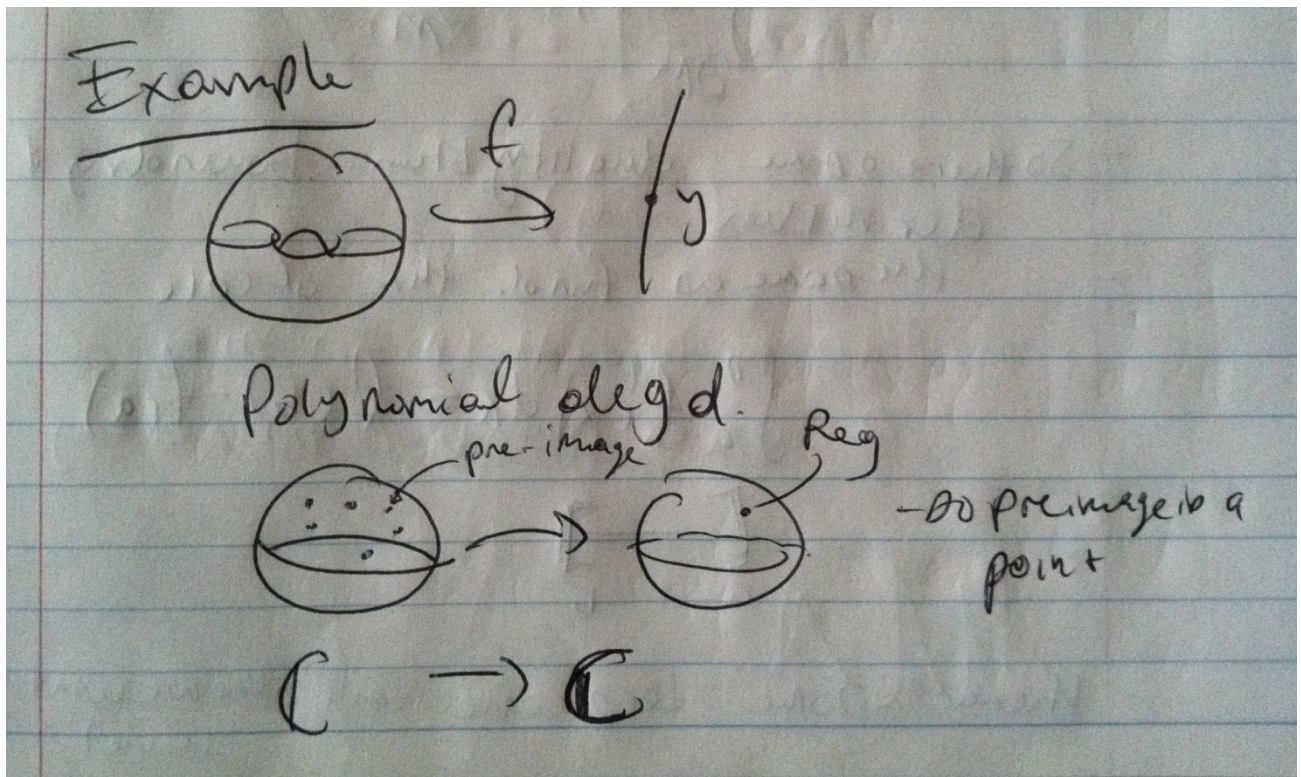 Example
f
y
Polynomial deg d.
pre-image
Reg
- so preimage is a
point
ℂ → ℂ